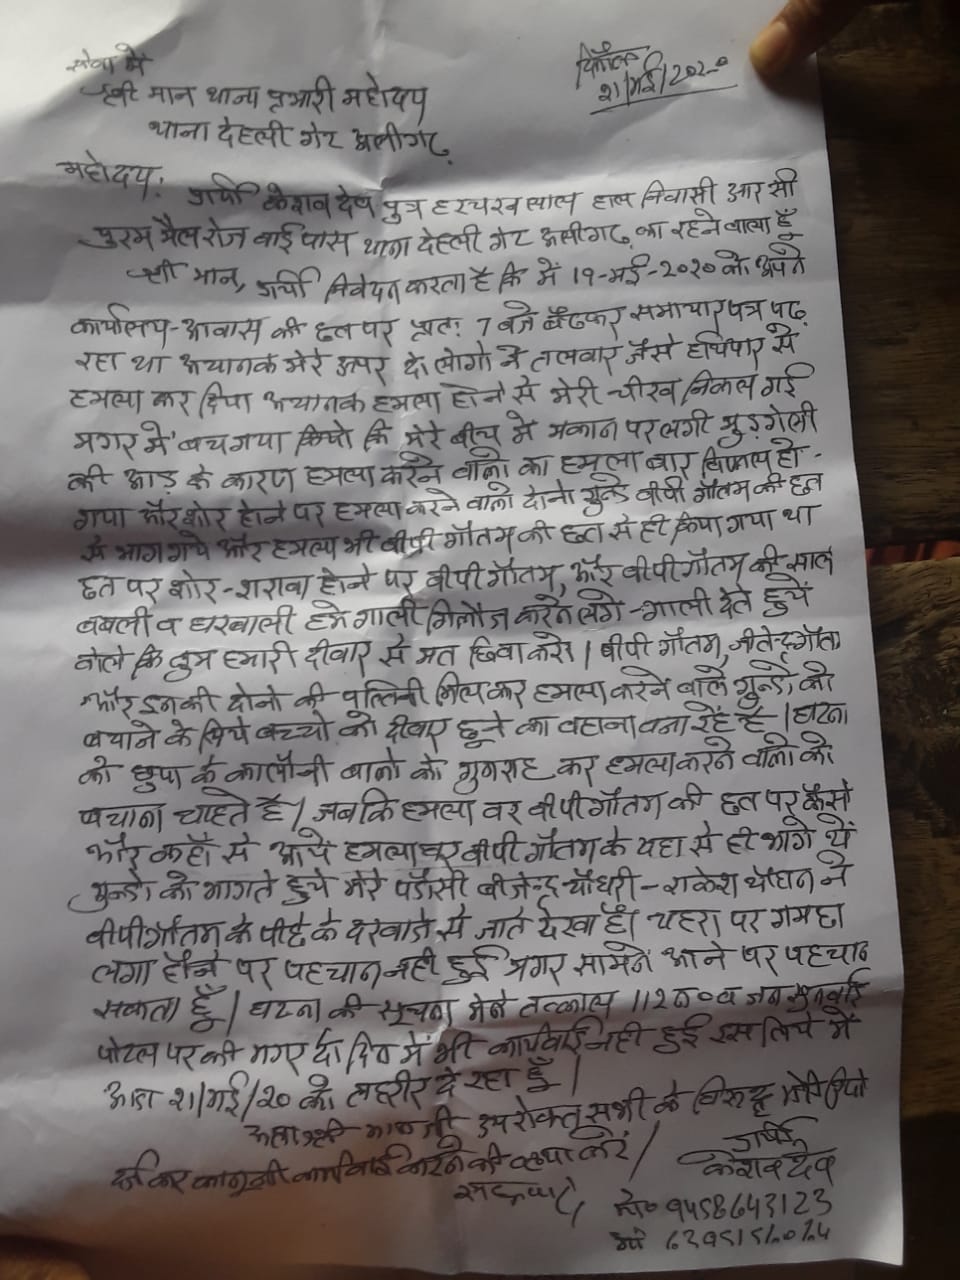 सेवा में
दिनाँक
२१/मई/2020
श्री मान थाना प्रभारी महोदय
थाना देहली गेट अलीगढ़
महोदय:
प्रार्थी केशव देव पुत्र हरचरन लाल हाल निवासी आर सी
पुरम भैल रोज बाई पास थाना देहली गेट अलीगढ़ का रहने वाला हूँ
श्री मान, प्रार्थी निवेदन करता है कि में 19-मई-2020 को अपने
कार्यालय-आवास की छत पर प्रातः 7 बजे बैठकर समाचार पत्र पढ़
रहा था अचानक मेरे ऊपर दो लोगो ने तलवार जैसे हथियार से
हमला कर दिया अचानक हमला होने से मेरी चीख निकल गई
मगर में बच गया कियो कि मेरे बीच में मकान पर लगी मुड़गेली
की आड़ के कारण हमला करने वालो का हमला वार विफल हो
गया और शोर होने पर हमला करने वाले दोनो गुन्डे वीपी गौतम की छत
से भाग गये और हमला भी वीपी गौतम की छत से ही किया गया था
छत पर शोर-शरावा होने पर वीपी गौतम, और वीपी गौतम की साले
बबली व घरवाली हमे गाली गिलौज करने लगे गाली देते हुये
बोले कि तुम हमारी दीवार से मत छिवा करो। वीपी गौतम, जीतेन्द्र गौतम
और इनकी दोनो की पत्निी मिलकर हमला करने वाले गुन्डो को
बचाने के लिये बच्चो को दीवार छूने का वहाना वना रहें है। घटना
को छुपा के कालौनी वालो को गुमराह कर हमला करने वालो को
बचाना चाहते है। जबकि हमला वर वीपी गौतम की छत पर कैसे
और कहाँ से आये हमलावर वीपी गौतम के यहा से ही भागे थे
गुन्डो को भागते हुये मेरे पडौसी बीजेन्द्र चौधरी-राकेश चौहान ने
वीपी गौतम के पीछे के दरवाजे से जाते देखा है। चहरा पर गमछा
लगा होने पर पहचान नही हुई मगर सामने आने पर पहचान
सकता हूँ। घटना की सूचना मेने तत्काल 112 न० व जन सुनवाई
पोटल पर की मगर दो दिन में भी कार्यवाई नही हुई इस लिये में
आज २१/मई/20 को तहरीर दे रहा हूँ।
अतः श्री मान जी उपरोक्त सभी के विरूद्ध
दर्ज कर कानूनी कार्यवाई करने की कृपा करें।
प्रार्थी
केशव देव
मो० 9458643123
मो०